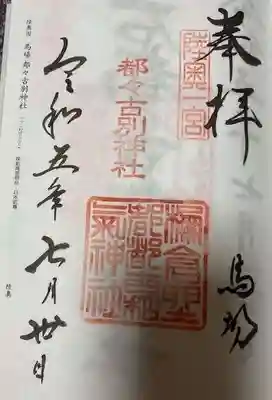 奉拝
馬場
陸奥一宮
都々古別神社
令和五年七月卅日
陸奥国 馬場 都々古別神社
陸奥